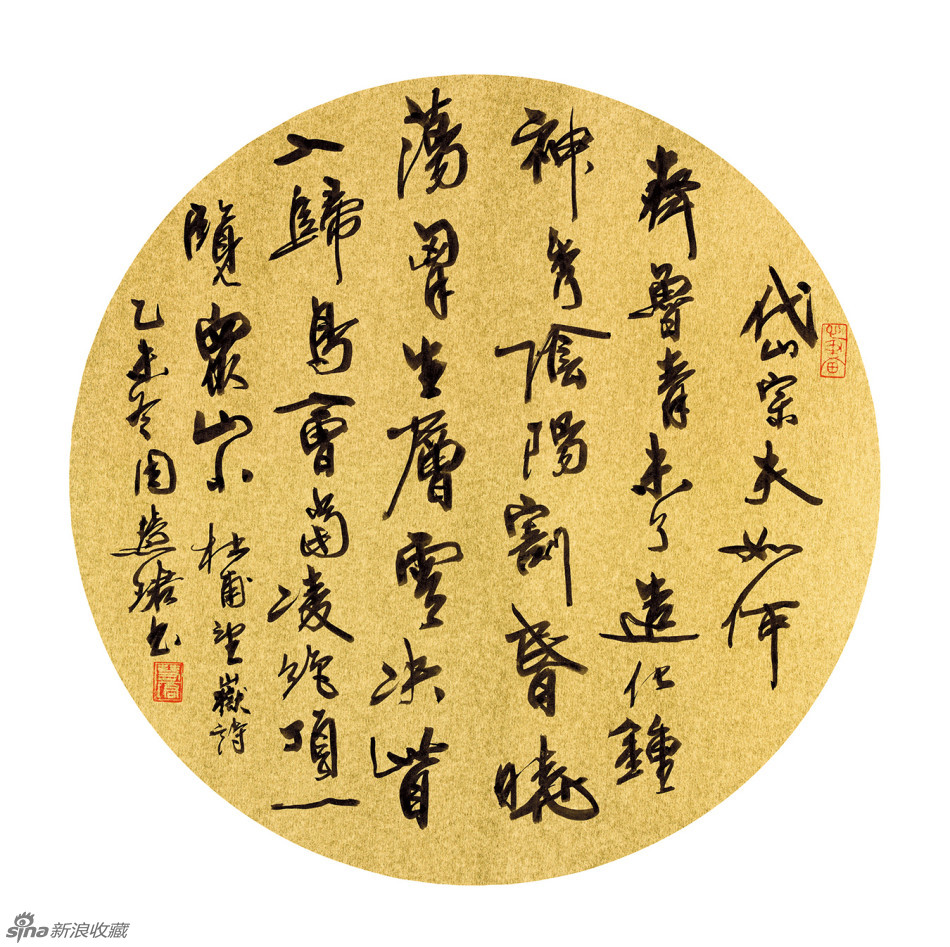 岱宗夫如何
齊魯青未了造化鍾
神秀陰陽割昏曉
蕩胸生層雲決眥
入歸鳥會當凌絶頂一
覽眾山小 杜甫望嶽詩
乙未冬周慧珺书
sina新浪收藏